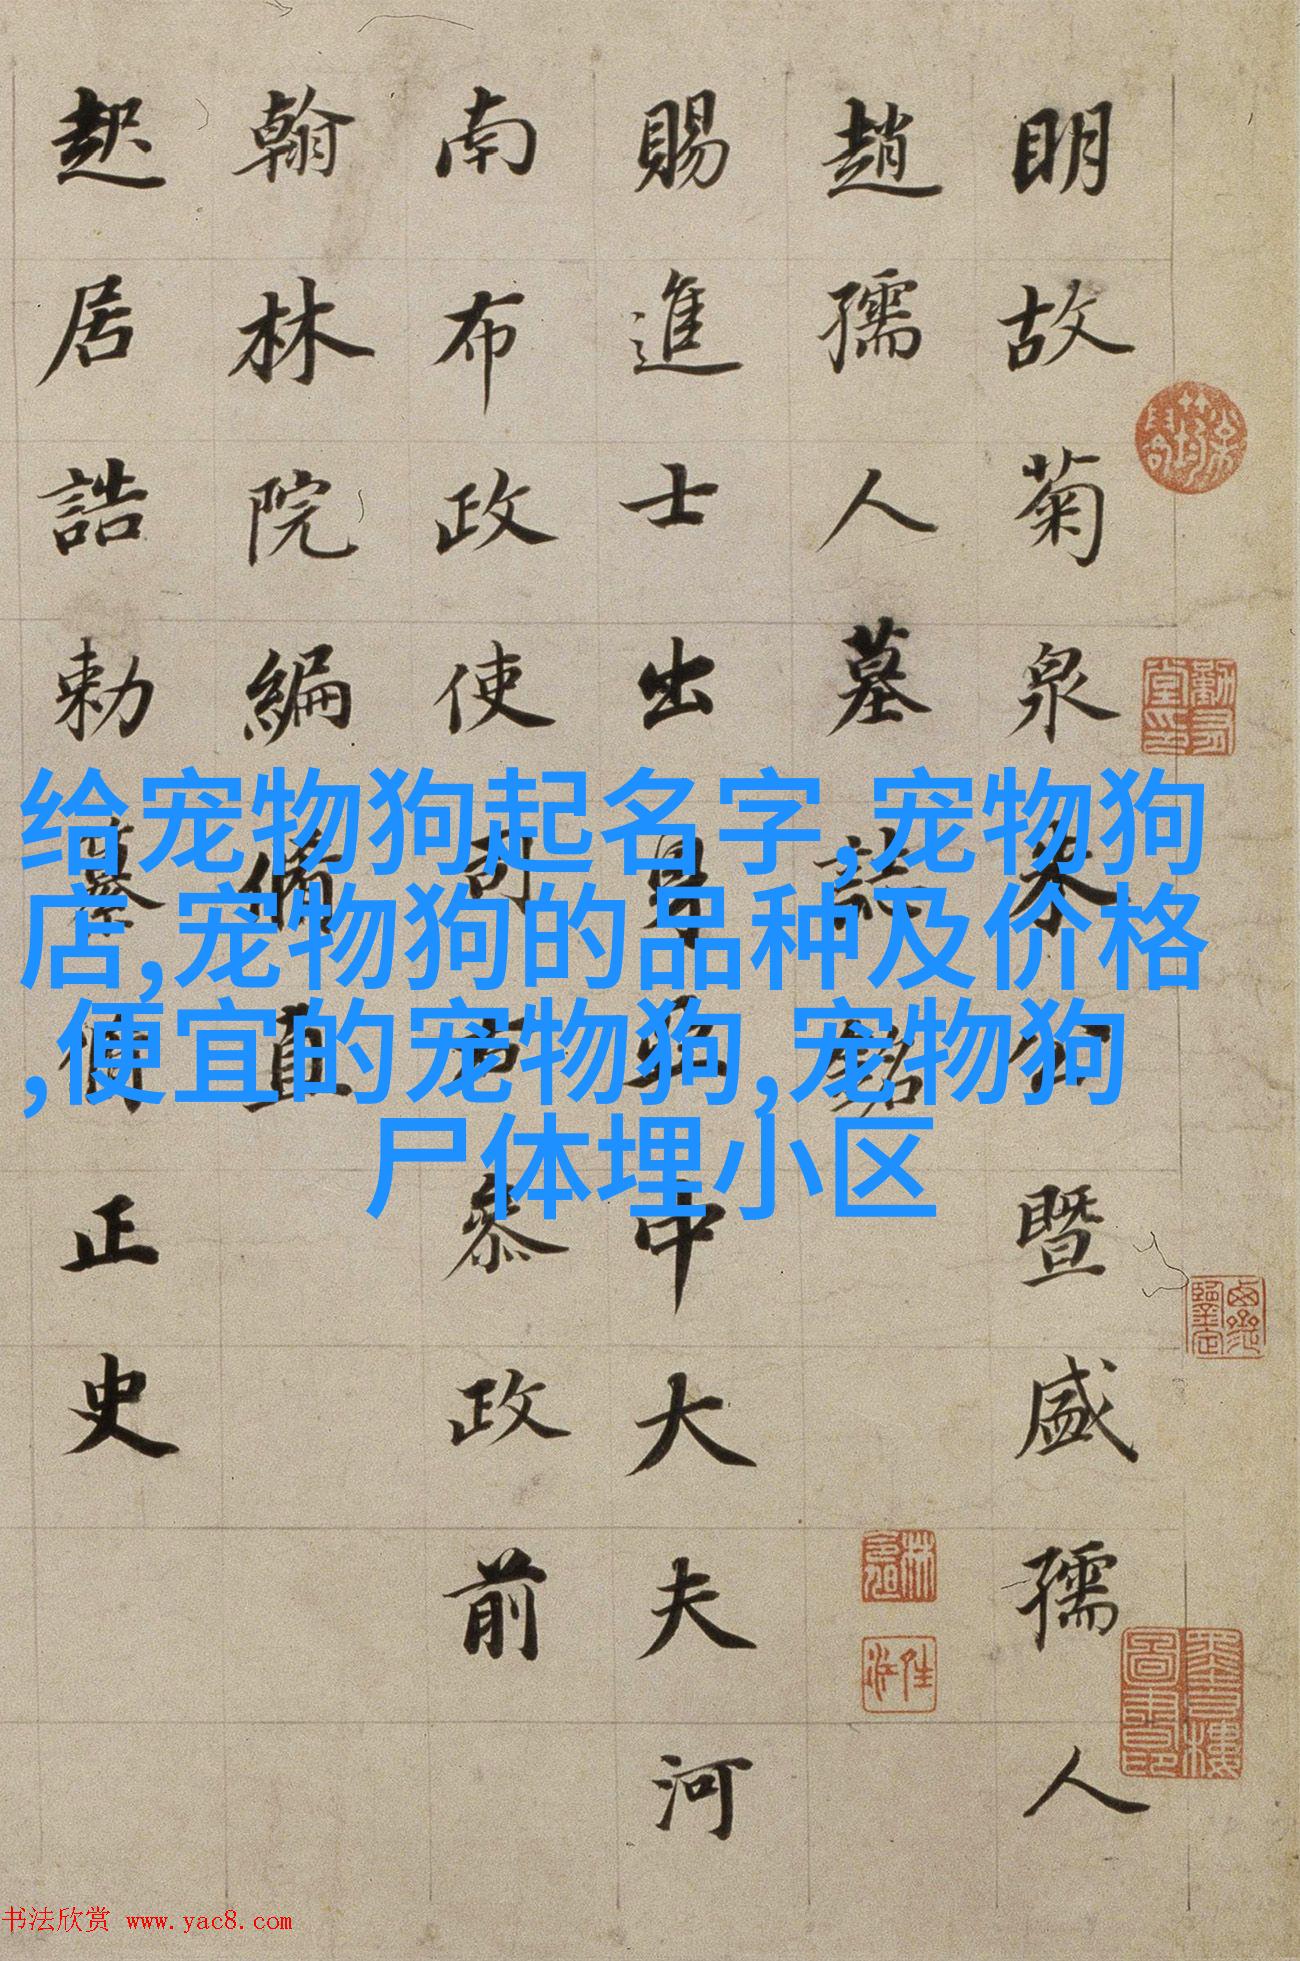 明故菊泉朱公暨盛孺人
趙孺人墓誌銘
賜進士出身亞中大夫河
南布政使司右叅政前
翰林院編脩直
起居誥勅纂修正史
给宠物狗起名字,宠物狗
店,宠物狗的品种及价格
,便宜的宠物狗,宠物狗
尸体埋小区
书法欣赏 www.yac8.com